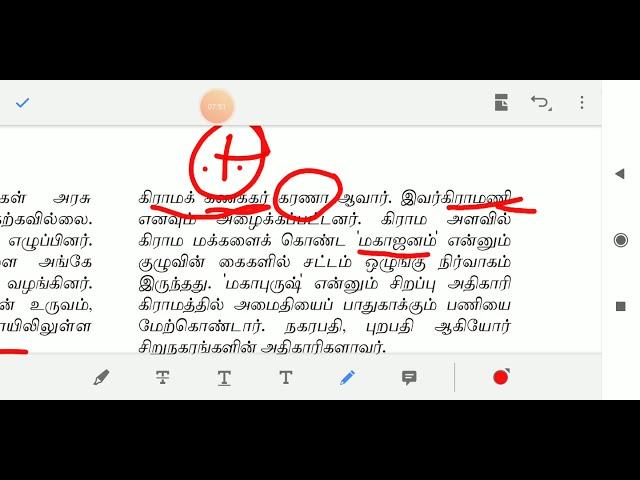 07:51
கள் அரசு
கிராமக் கணக்கர் கரணா ஆவார். இவர்கிராமணி
ற்கவில்லை.
எனவும் அழைக்கப்பட்டனர். கிராம அளவில்
எழுப்பினர்.
கிராம மக்களைக் கொண்ட 'மகாஜனம்' என்னும்
அங்கே
குழுவின் கைகளில் சட்டம் ஒழுங்கு நிர்வாகம்
வழங்கினர்.
இருந்தது. 'மகாபுருஷ்' என்னும் சிறப்பு அதிகாரி
ன் உருவம்,
கிராமத்தில் அமைதியைப் பாதுகாக்கும் பணியை
ாயிலிலுள்ள
மேற்கொண்டார். நகரபதி, புறபதி ஆகியோர்
சிறுநகரங்களின் அதிகாரிகளாவர்.
T T T